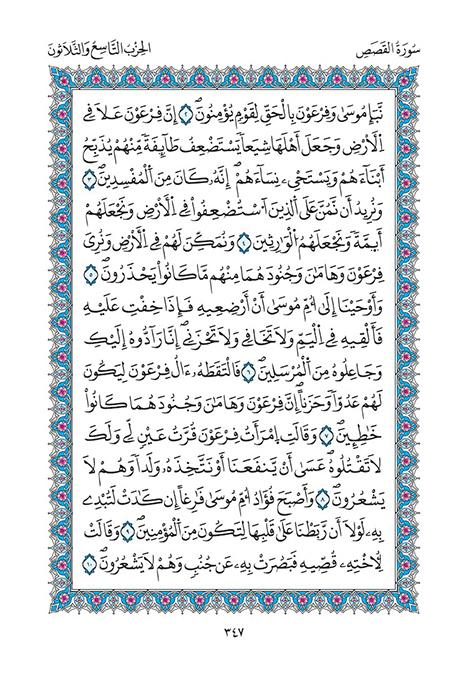 سُورَةُ القَصَصِ
الحِزْبُ التَّاسِعُ وَالثَّلَاثُونَ
نَّبَإِ مُوسَىٰ وَفِرْعَوْنَ بِالْحَقِّ لِقَوْمٍ يُؤْمِنُونَۖ ٢ إِنَّ فِرْعَوْنَ عَلَا فِے
اِ۬لْأَرْضِ وَجَعَلَ أَهْلَهَا شِيَعاٗ يَسْتَضْعِفُ طَآئِفَةٗ مِّنْهُمْ يُذَبِّحُ
أَبْنَآءَهُمْ وَيَسْتَحْيِۦ نِسَآءَهُمُۥٓۖ إِنَّهُۥ كَانَ مِنَ اَ۬لْمُفْسِدِينَۖ ٣
وَنُرِيدُ أَن نَّمُنَّ عَلَى اَ۬لذِينَ اَ۟سْتُضْعِفُواْ فِے اِ۬لْأَرْضِ وَنَجْعَلَهُمُۥٓ
أَئِمَّةٗ وَنَجْعَلَهُمُ اُ۬لْوَٰرِثِينَ ٤ وَنُمَكِّنَ لَهُمْ فِے اِ۬لْأَرْضِ وَنُرِيَ
فِرْعَوْنَ وَهَٰمَٰنَ وَجُنُودَهُمَا مِنْهُم مَّا كَانُواْ يَحْذَرُونَۖ ٥
وَأَوْحَيْنَآ إِلَىٰٓ أُمِّ مُوسَىٰٓ أَنْ أَرْضِعِيهِ فَإِذَا خِفْتِ عَلَيْهِ
فَأَلْقِيهِ فِے اِ۬لْيَمِّ وَلَا تَخَافِے وَلَا تَحْزَنِےٓ إِنَّا رَآدُّوهُ إِلَيْكِ
وَجَاعِلُوهُ مِنَ اَ۬لْمُرْسَلِينَۖ ٦ فَالْتَقَطَهُۥٓ ءَالُ فِرْعَوْنَ لِيَكُونَ
لَهُمْ عَدُوّاٗ وَحَزَناًۖ إِنَّ فِرْعَوْنَ وَهَٰمَٰنَ وَجُنُودَهُمَا كَانُواْ
خَٰطِـِٕينَۖ ٧ وَقَالَتِ اِ۪مْرَأَتُ فِرْعَوْنَ قُرَّتُ عَيْنٖ لِّے وَلَكَۖ
لَا تَقْتُلُوهُ عَسَىٰٓ أَنْ يَّنفَعَنَآ أَوْ نَتَّخِذَهُۥ وَلَداٗ وَهُمْ لَا
يَشْعُرُونَۖ ٨ وَأَصْبَحَ فُؤَادُ أُمِّ مُوسَىٰ فَٰرِغاًۖ إِن كَادَتْ لَتُبْدِے
بِهِۦ لَوْلَآ أَن رَّبَطْنَا عَلَىٰ قَلْبِهَا لِتَكُونَ مِنَ اَ۬لْمُؤْمِنِينَۖ ٩ وَقَالَتْ
لِأُخْتِهِۦ قُصِّيهِۖ فَبَصُرَتْ بِهِۦ عَن جُنُبٖ وَهُمْ لَا يَشْعُرُونَۖ ١٠
٣٤٧